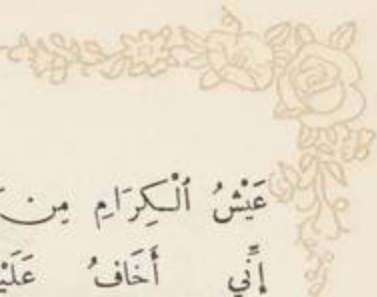 عَيْشُ ٱلْكِرَامِ مِن
إِنِّي أَخَافُ